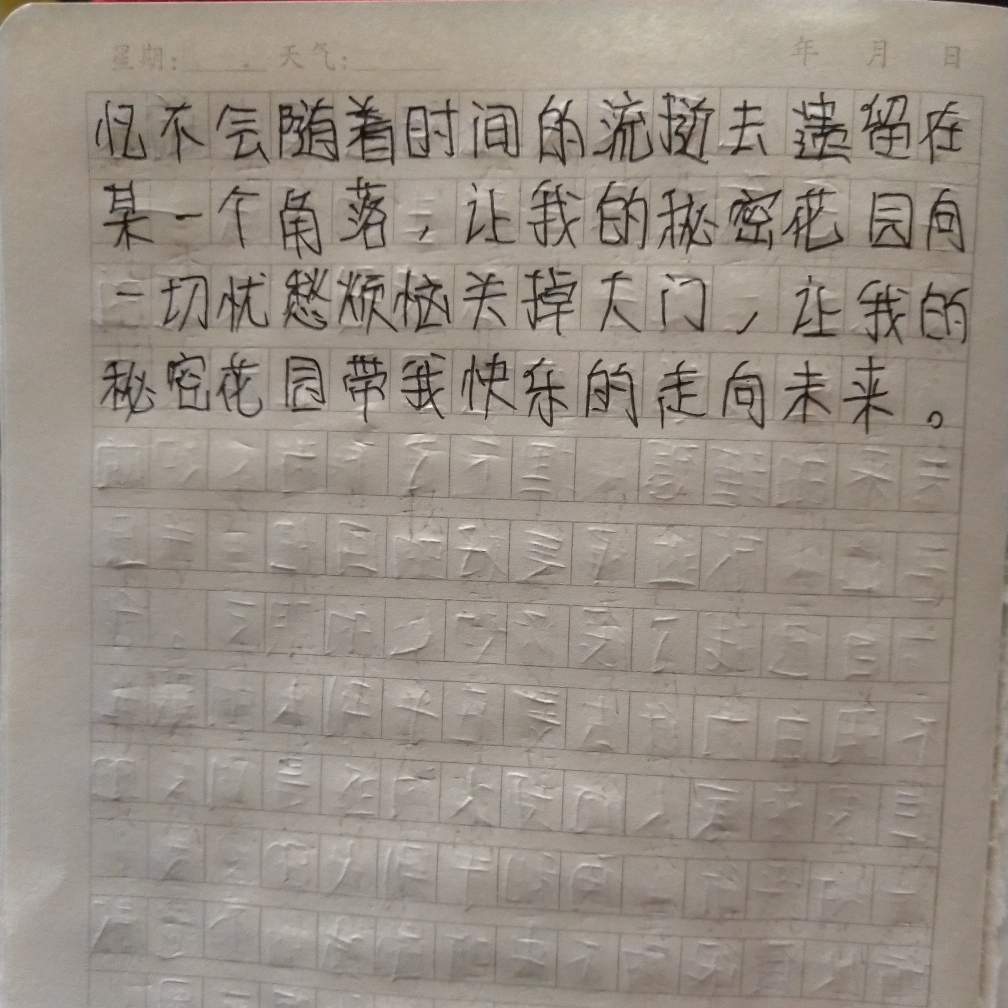 星期: 天气: 年 月 日
忆不会随着时间的流逝去遗留在
某一个角落，让我的秘密花园向
一切忧愁烦恼关掉大门，让我的
秘密花园带我快乐的走向未来。